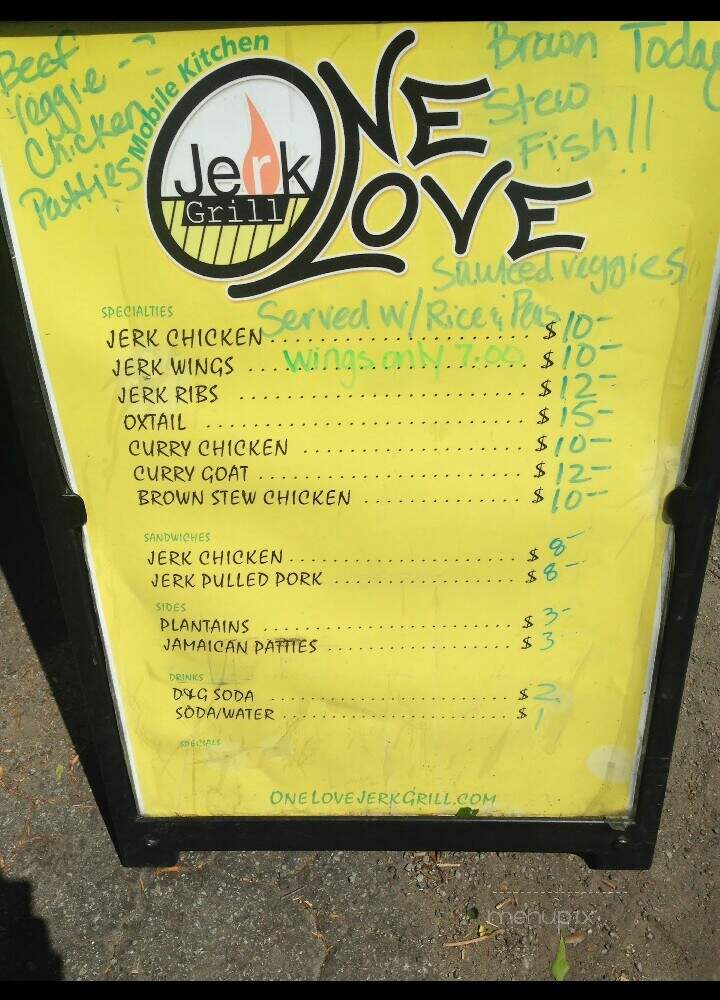 Beef
Veggie -
Chicken
Patties
Mobile Kitchen
Jerk
Grill
ONE
LOVE
Brown Today
Stew
Fish!!
Sauteed veggies
Served w/ Rice & Peas
SPECIALTIES
JERK CHICKEN $ 10-
wings only 7.00
JERK WINGS $ 10-
JERK RIBS $ 12-
OXTAIL $ 15-
CURRY CHICKEN $ 10-
CURRY GOAT $ 12-
BROWN STEW CHICKEN $ 10-
SANDWICHES
JERK CHICKEN $ 8-
JERK PULLED PORK $ 8-
SIDES
PLANTAINS $ 3-
JAMAICAN PATTIES $ 3
DRINKS
D&G SODA $ 2
SODA/WATER $ 1
SPECIALS
ONELOVEJERKGRILL.COM
menupix